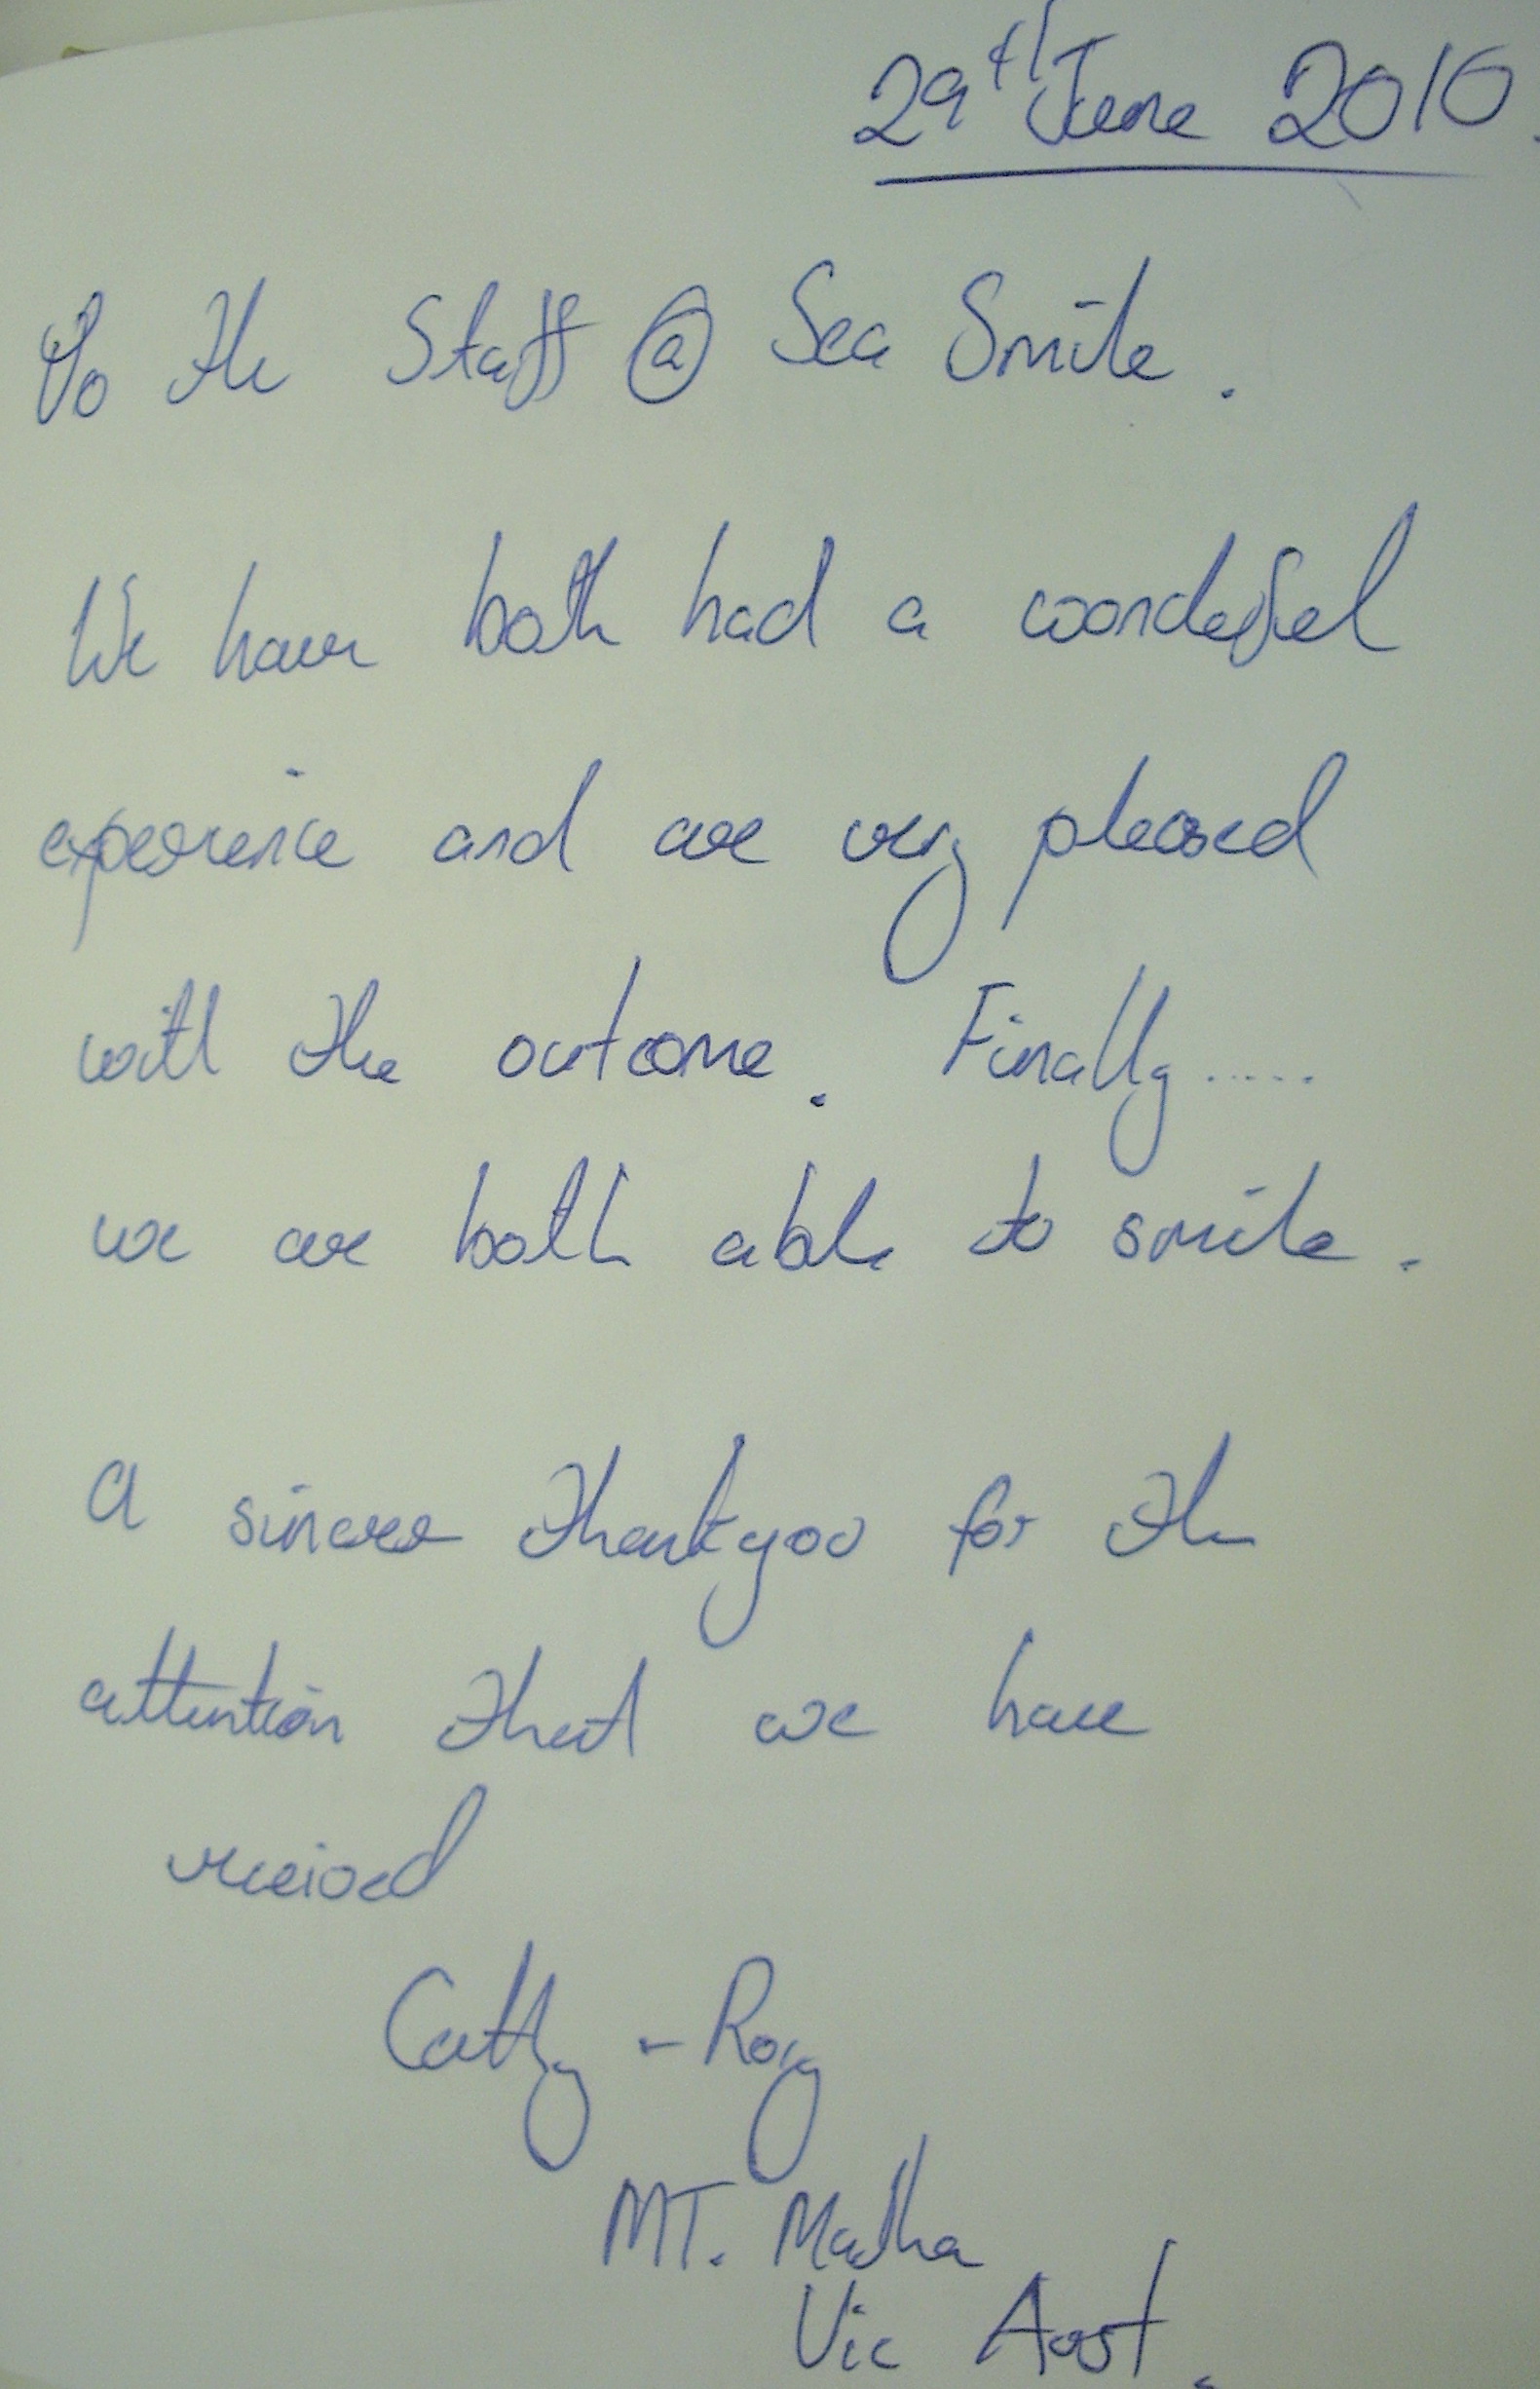 29th June 2010.
To the Staff @ Sea Smile.
We have both had a wonderful
experience and are very pleased
with the outcome. Finally.....
we are both able to smile.
A sincere thankyou for the
attention that we have
received
Cathy - Rory
MT. Martha
Vic Aust.